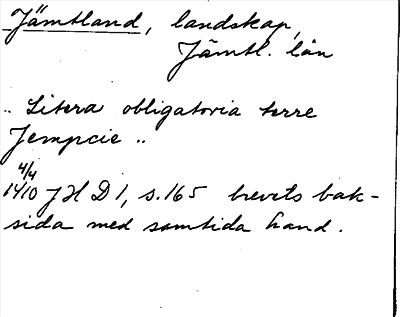 Jämtland, landskap,
Jämtl. län
.. Litera obligatoria terre
Jempcie ..
4/4
1410 JH D 1, s. 165 brevets bak-
sida med samtida hand.